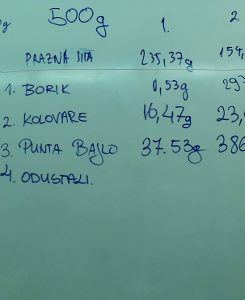 g 500g 1. 2
PRAZNA SITA 235,37g 154,
1. BORIK 0,53g 297
2. KOLOVARE 16,47g 23,
3. PUNTA BAJLO 37.53g 386
4. ODUSTALI.